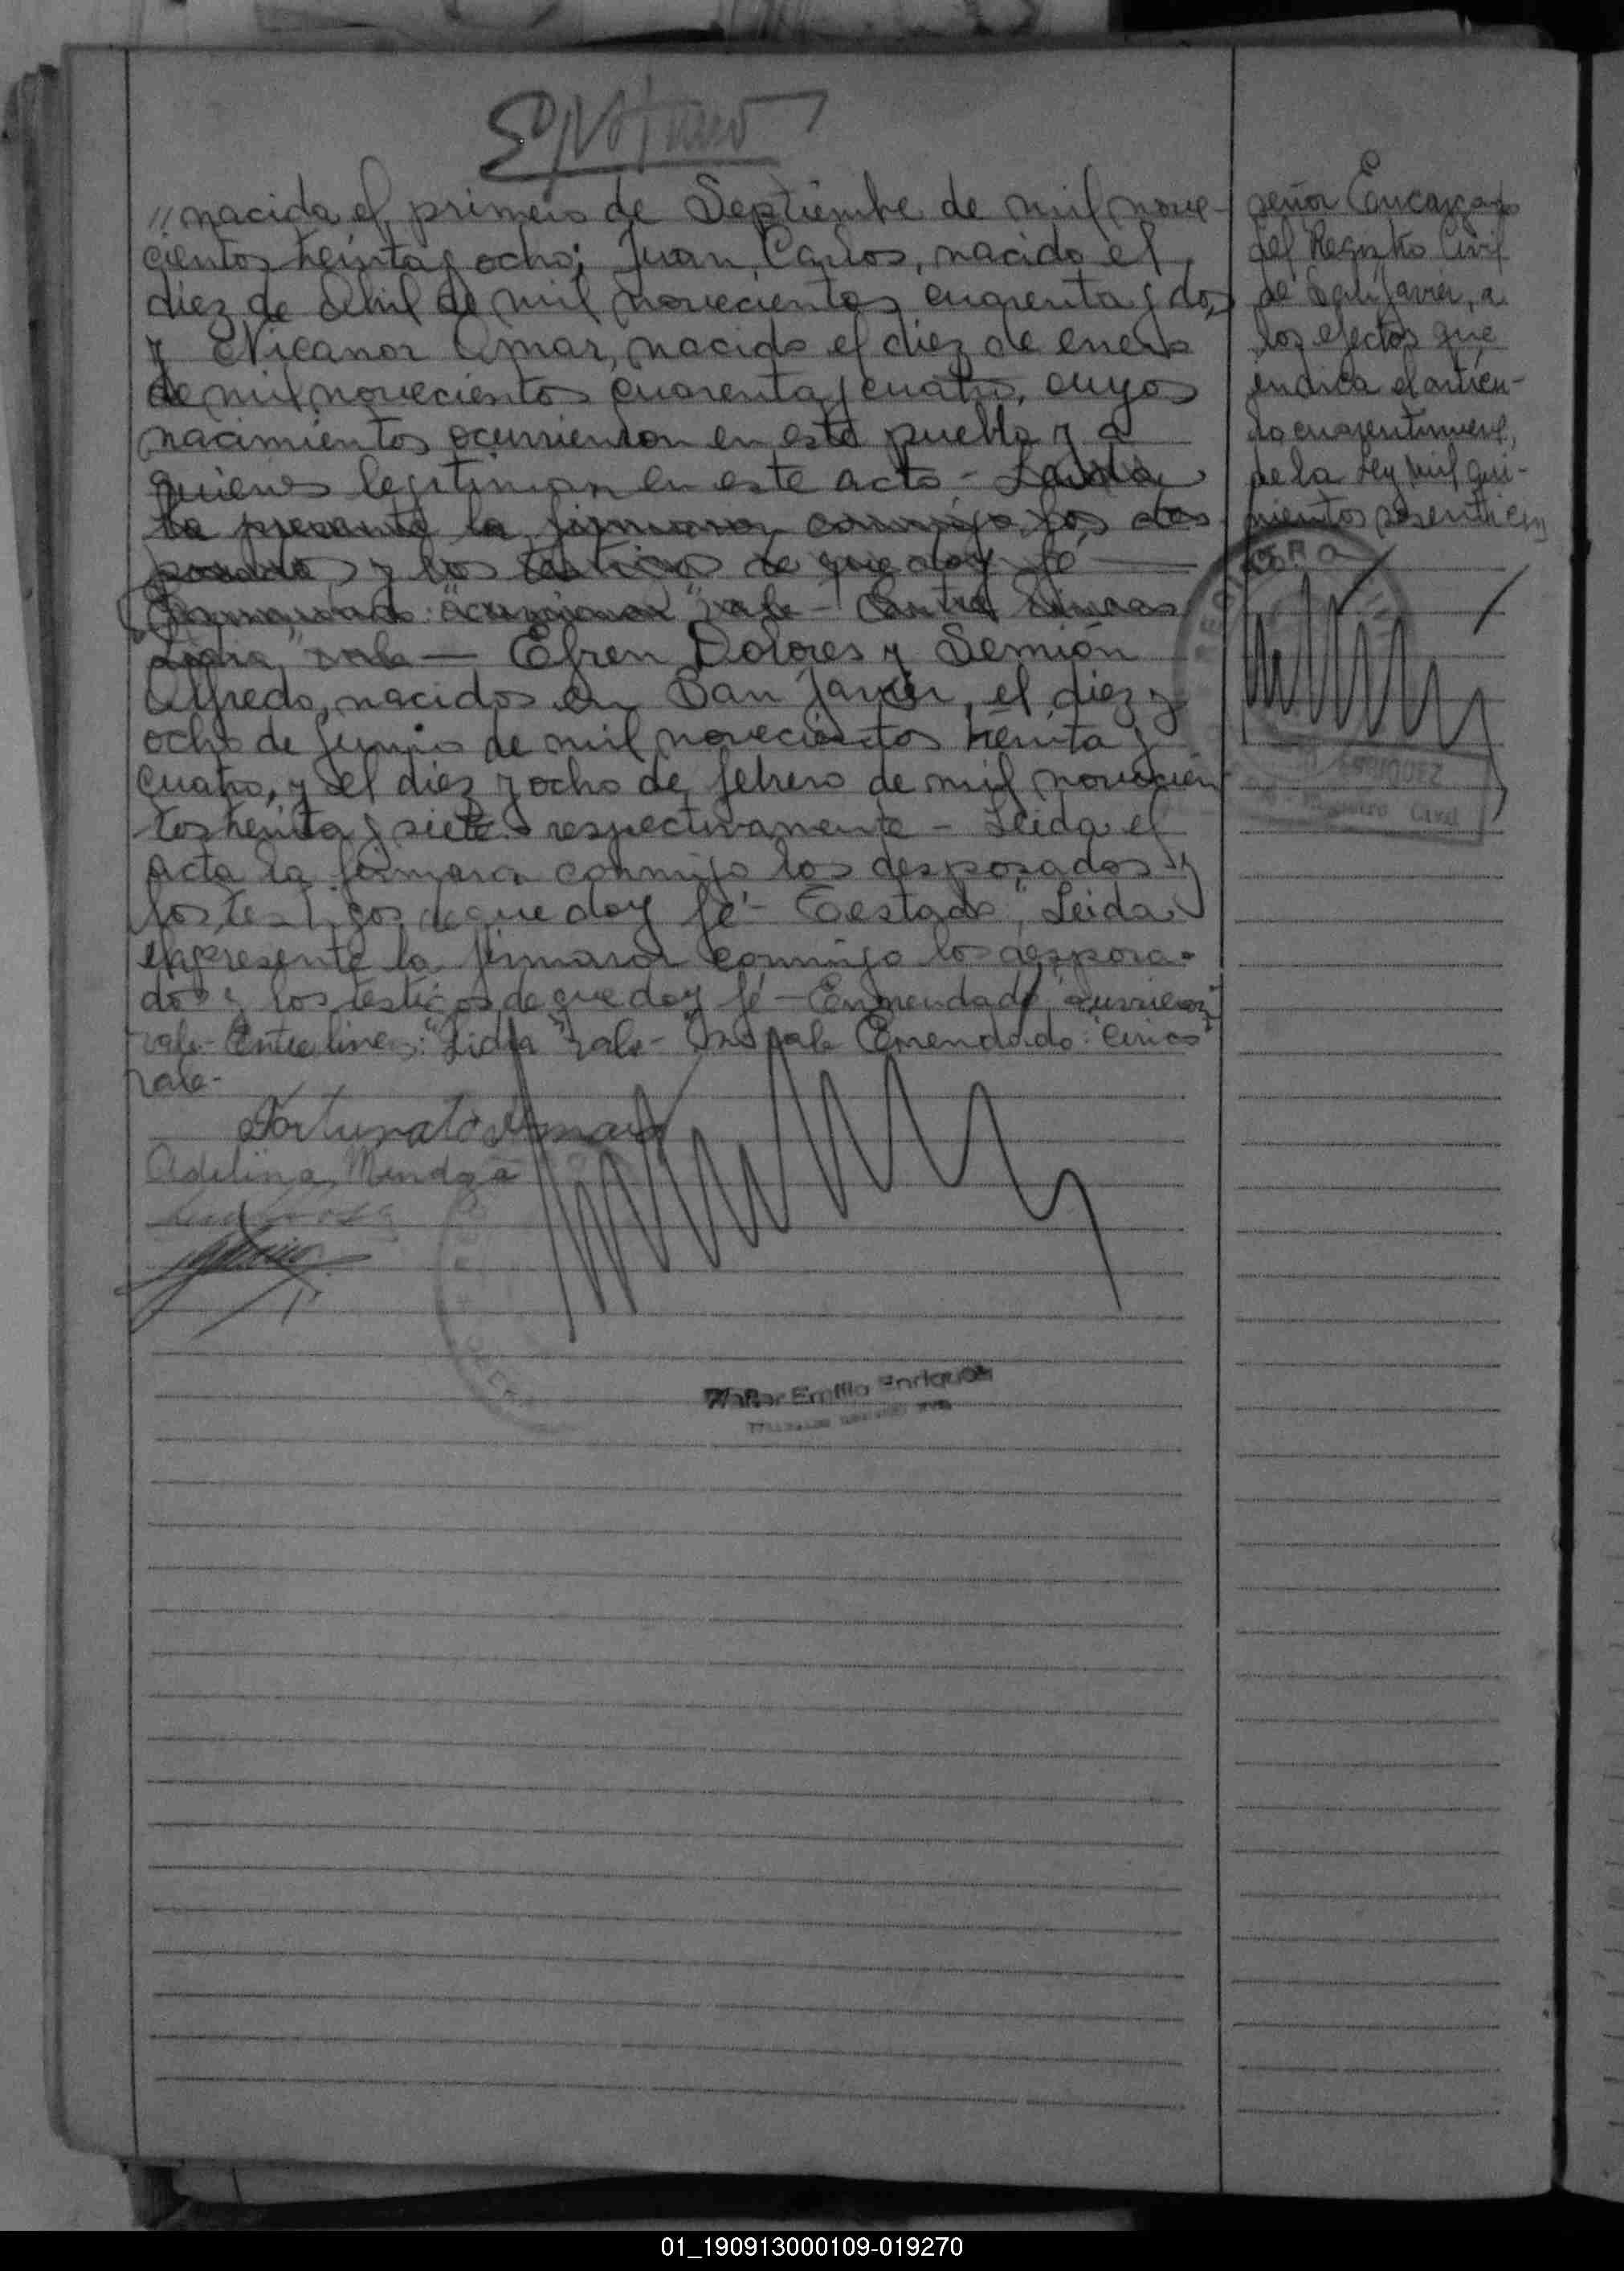 "nacida el primero de Septiembre de mil nove-
cientos treinta y ocho; Juan Carlos, nacido el
diez de Abril de mil novecientos cuarenta y dos,
y Nicanor Omar, nacido el diez de enero
de mil novecientos cuarenta y cuatro, cuyos
nacimientos ocurrieron en este pueblo y a
quienes legitiman en este acto - Leida
la presente la firmaron conmigo los des-
posados y los testigos de que doy fé
vale - Entre lineas
"Lidia" vale — Efren Dolores y Semión
Alfredo, nacidos en San Javier, el diez y
ocho de Junio de mil novecientos treinta y
cuatro, y el diez y ocho de febrero de mil novecien
tos treinta y siete respectivamente - Leida el
acta la firmaron conmigo los desposados y
los testigos de que doy fé - Testado: Leida
la presente la firmaron conmigo los desposa-
dos y los testigos de que doy fé - Enmendado "ocurrieron"
vale - Entre lineas: "Lidia" vale - No vale Enmendado:
vale -
Fortunato
Adelina Mendoza
Walter Emilio Enriquez
señor Encargado
del Registro Civil
de San Javier, a
los efectos que
indica el artícu-
lo cuarentinueve,
de la Ley mil qui-
nientos sesenticinco
ENRIQUEZ
Registro Civil
01_190913000109-019270